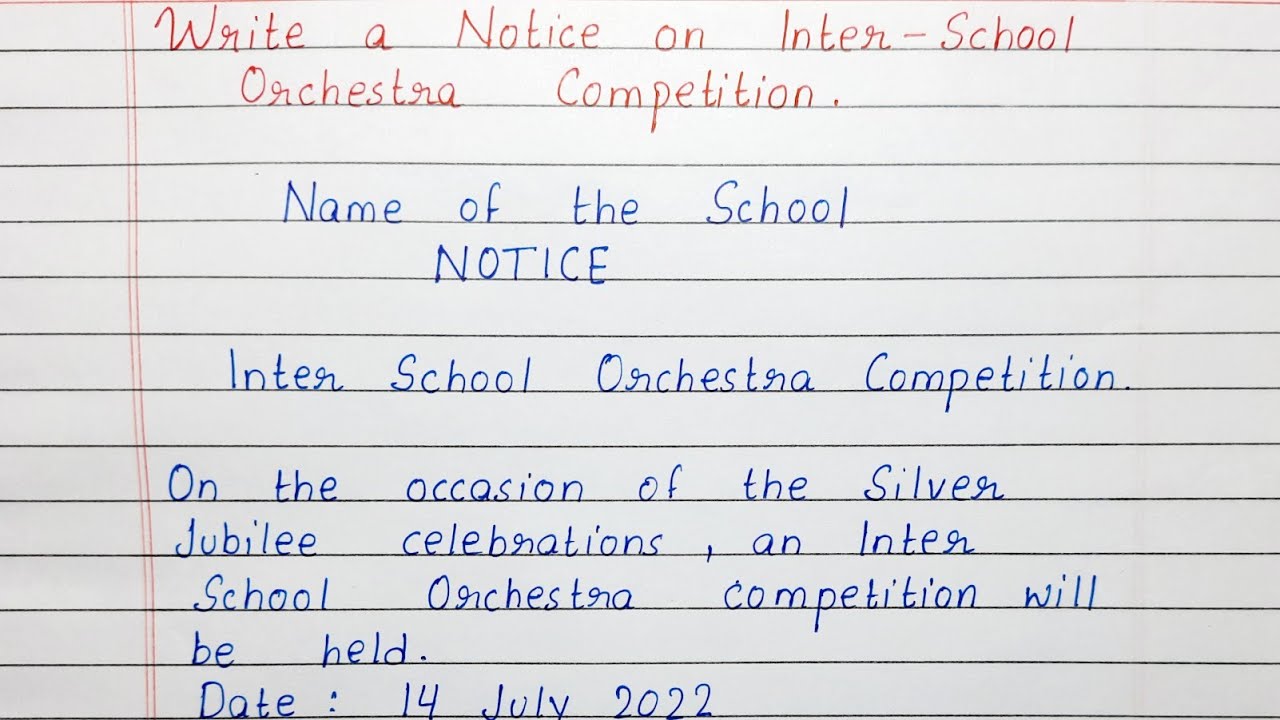 Write a Notice on Inter-School
Orchestra Competition.
Name of the School
NOTICE
Inter School Orchestra Competition.
On the occasion of the Silver
Jubilee celebrations, an Inter
School Orchestra competition will
be held.
Date : 14 July 2022